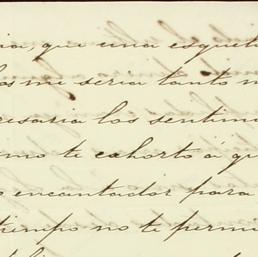 que una esquel
me seria tanto m
esaria los sentim
mo te exhorto á qu
encantador para
tiempo no te permi